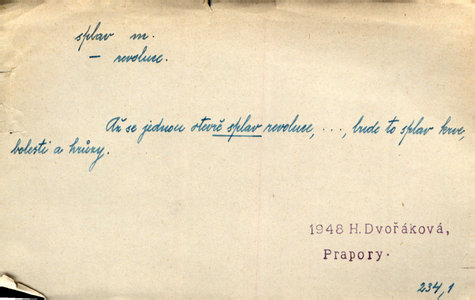 splav m.
– revoluce.
Až se jednou otevře splav revoluce, ..., bude to splav krve,
bolesti a hrůzy.
1948 H. Dvořáková,
Prapory.
234,1